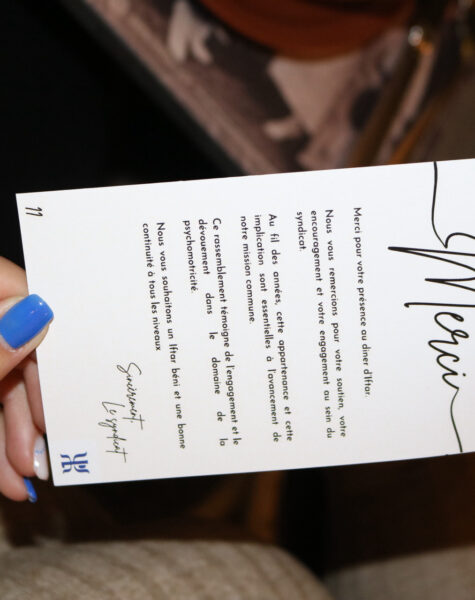 Merci
Merci pour votre présence au diner d'Iftar.
Nous vous remercions pour votre soutien, votre
encouragement et votre engagement au sein du
syndicat.
Au fil des années, cette appartenance et cette
implication sont essentielles à l'avancement de
notre mission commune.
Ce rassemblement témoigne de l'engagement et le
dévouement dans le domaine de la
psychomotricité.
Nous vous souhaitions un Iftar béni et une bonne
continuité à tous les niveaux
Sincèrement
Le syndicat
11